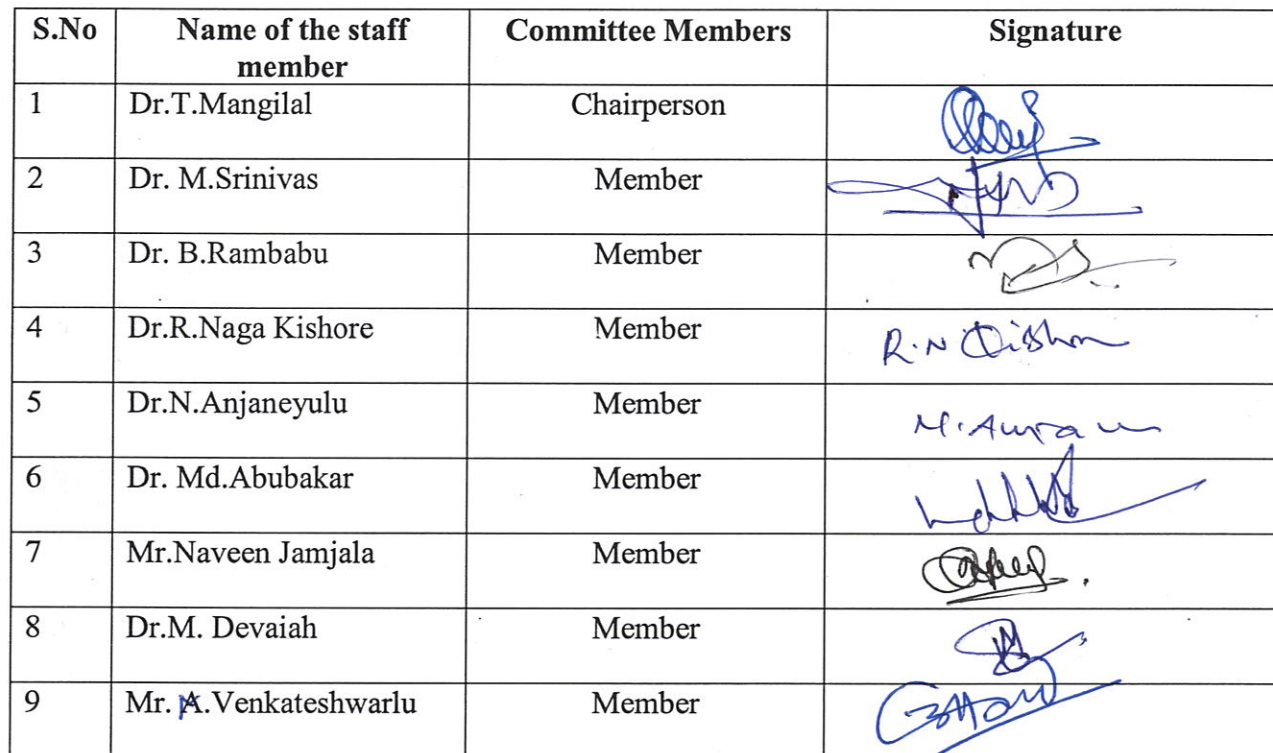 S.No Name of the staff member Committee Members Signature
1 Dr.T.Mangilal Chairperson
2 Dr. M.Srinivas Member
3 Dr. B.Rambabu Member
4 Dr.R.Naga Kishore Member R.N Kishore
5 Dr.N.Anjaneyulu Member
6 Dr. Md.Abubakar Member
7 Mr.Naveen Jamjala Member
8 Dr.M. Devaiah Member
9 Mr. A.Venkateshwarlu Member